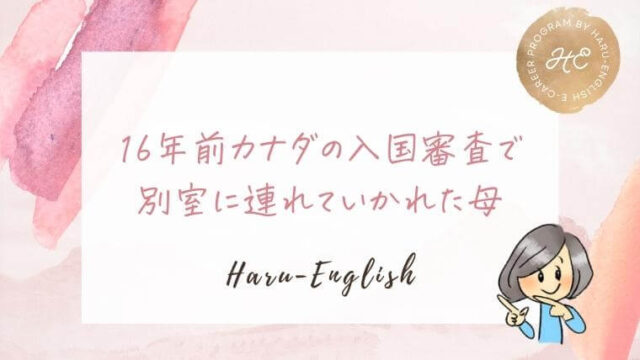 E-CAREER PROGRAM BY HARU-ENGLISH
HE
16年前カナダの入国審査で
別室に連れていかれた母
Haru-English